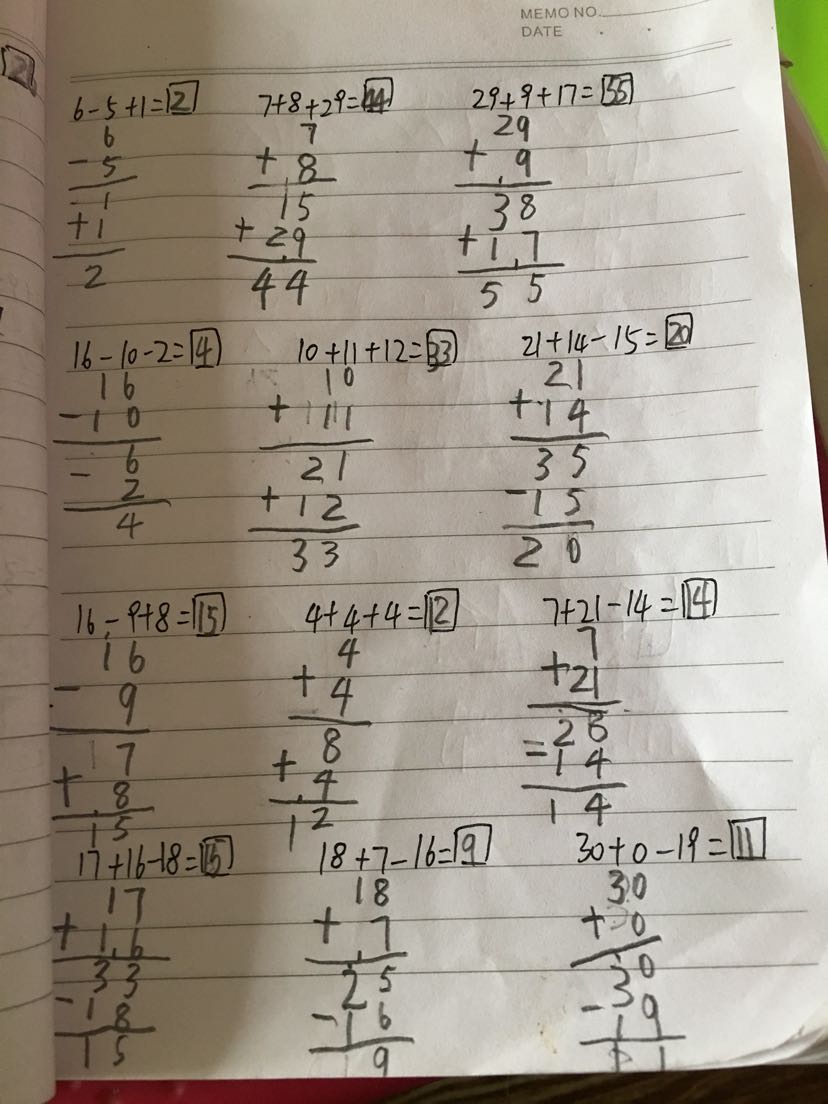 MEMO NO.
DATE
2
6-5+1=2 7+8+29=44 29+9+17=55
6 7 29
-5 +8 +9
1 15 38
+1 +29 +17
2 44 55
16-10-2=4 10+11+12=33 21+14-15=20
16 10 21
-10 +11 +14
6 21 35
-2 +12 -15
4 33 20
16-9+8=15 4+4+4=12 7+21-14=14
16 4 7
-9 +4 +21
7 8 28
+8 +4 =14
15 12 14
17+16-18=15 18+7-16=9 30+0-19=11
17 18 30
+16 +7 +0
33 25 30
-18 -16 -19
15 9 11